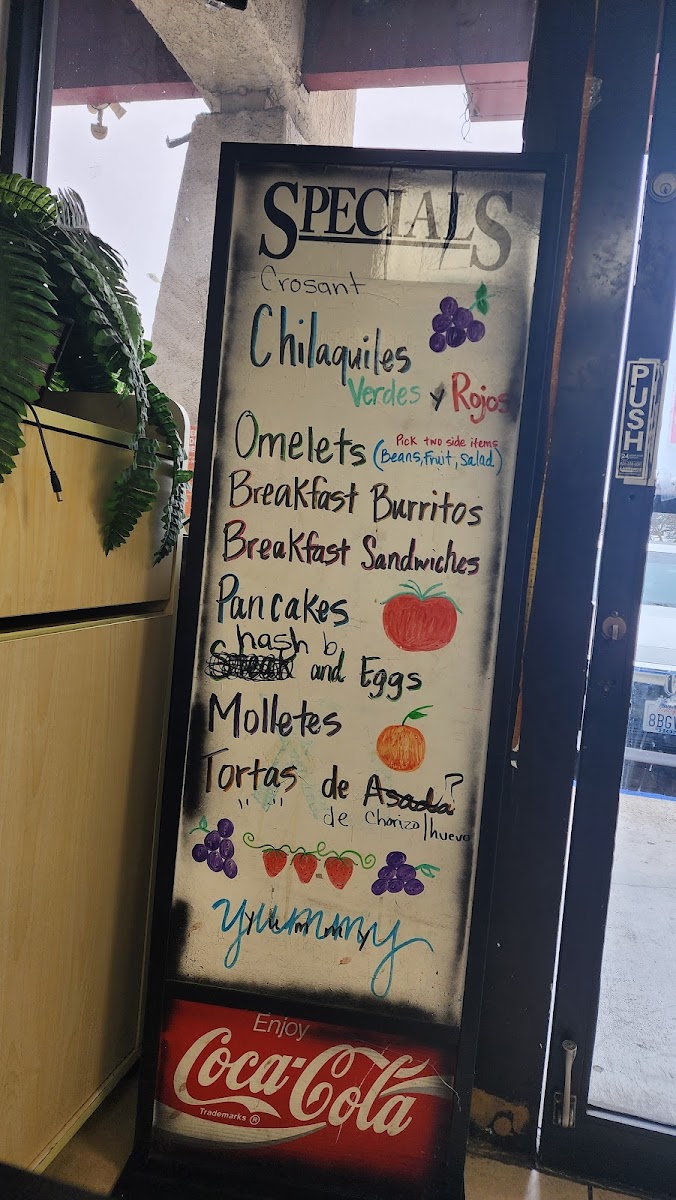 SPECIALS
Crosant
Chilaquiles
Verdes y Rojos
Omelets
Pick two side items
(Beans, Fruit, Salad)
Breakfast Burritos
Breakfast Sandwiches
Pancakes
hash b
Steak and Eggs
Molletes
Tortas de Asada?
" " de Chorizo/huevo
yummy
yummy
Enjoy
Coca-Cola
Trademarks ®
PUSH
24
8BG